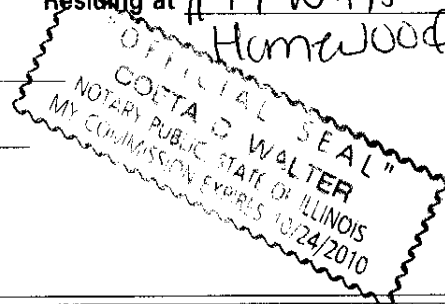 Residing at
Homewood
"OFFICIAL SEAL"
COETA D WALTER
NOTARY PUBLIC, STATE OF ILLINOIS
MY COMMISSION EXPIRES 10/24/2010